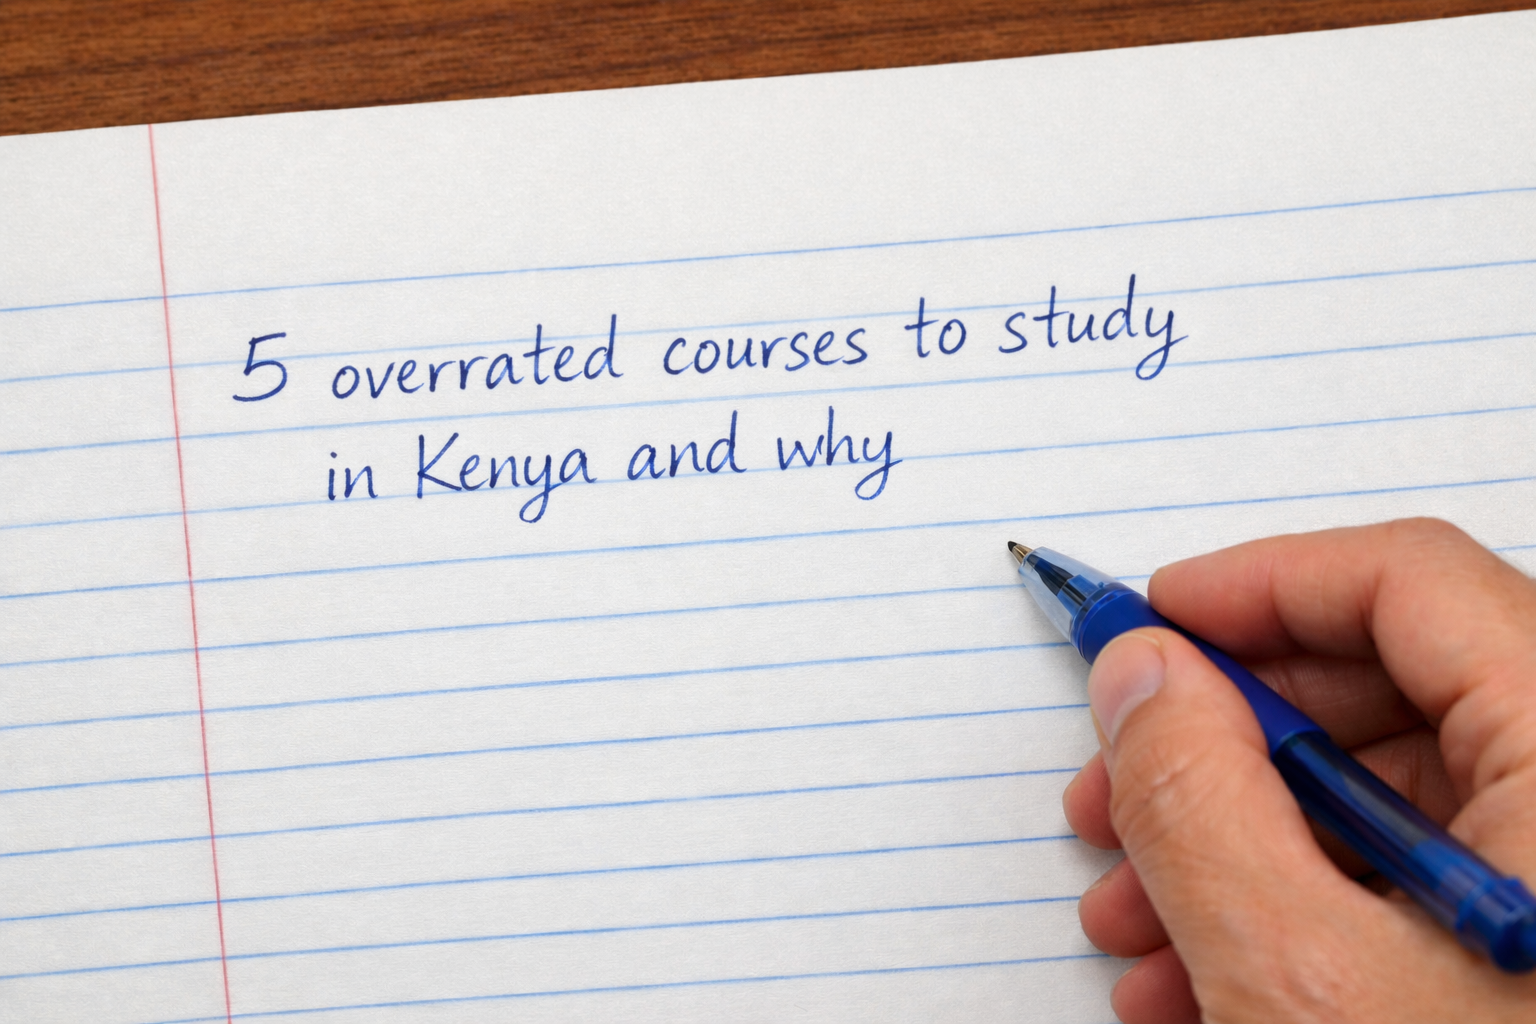 5 overrated courses to study
in Kenya and why